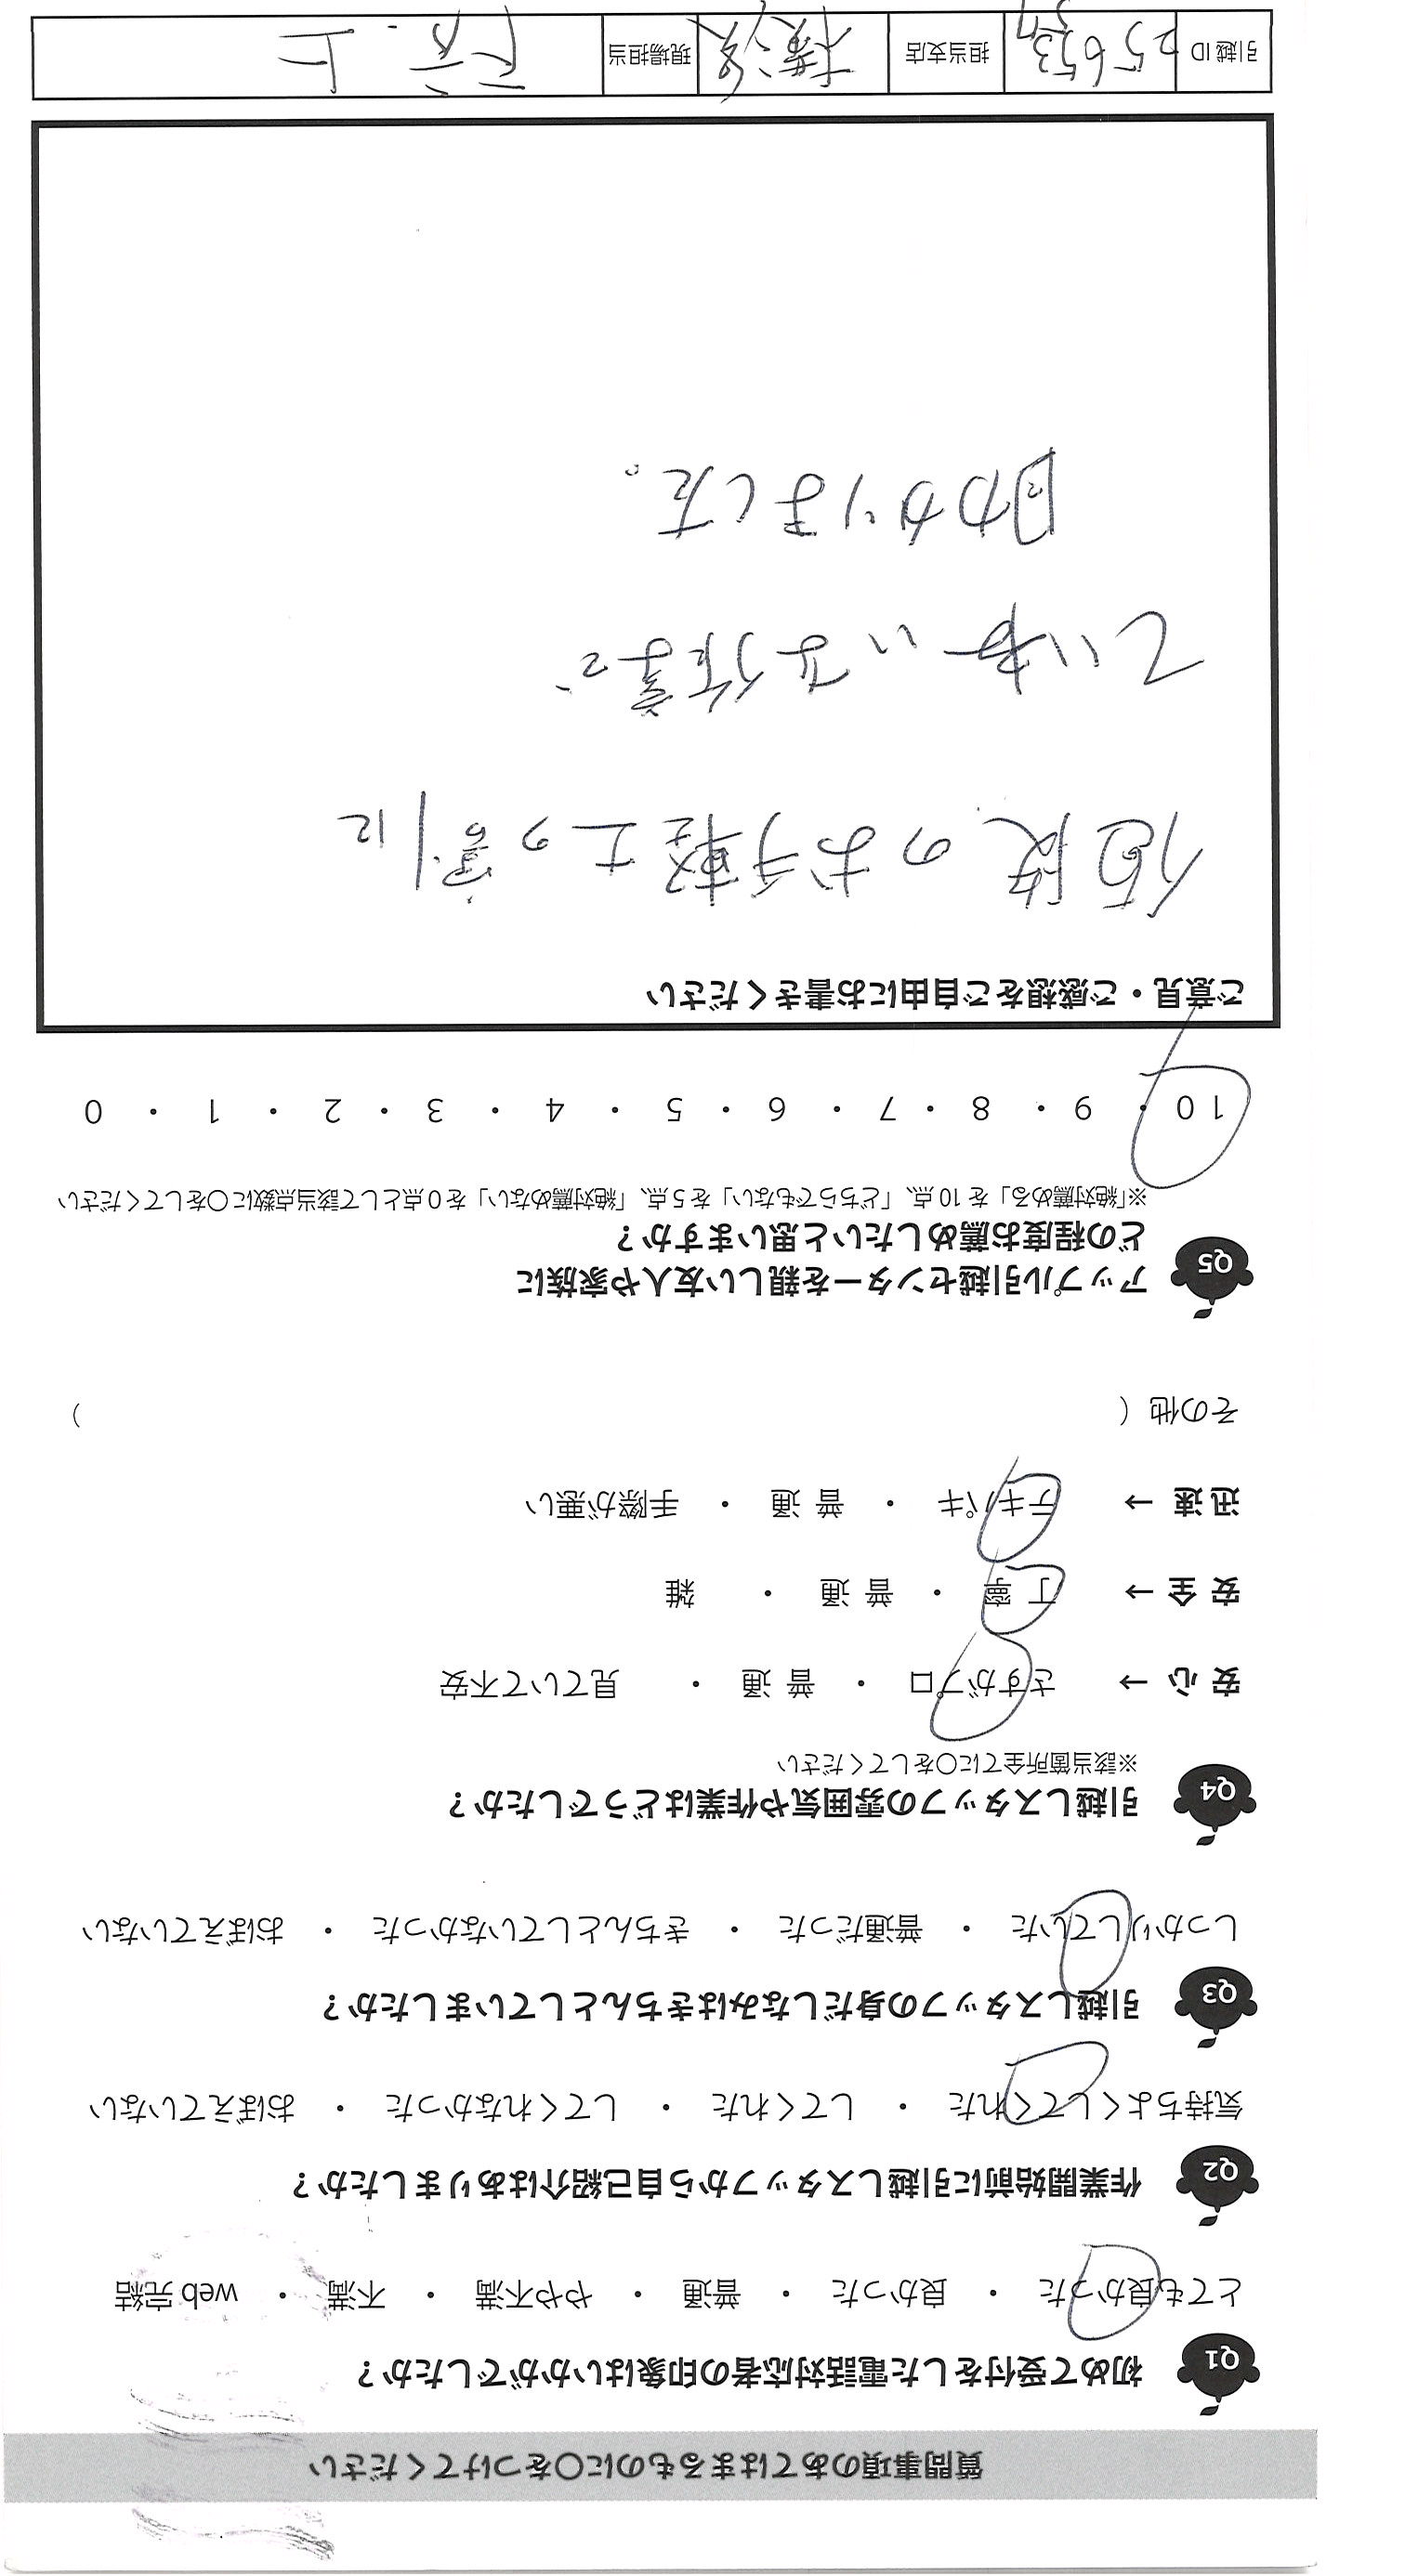 質問事項のあてはまるものに○をつけてください
Q1 初めて受付をした電話対応者の印象はいかがでしたか？
とても良かった ・ 良かった ・ 普通 ・ やや不満 ・ 不満 ・ web 完結
Q2 作業開始前に引越しスタッフから自己紹介はありましたか？
気持ちよくしてくれた ・ してくれた ・ してくれなかった ・ おぼえていない
Q3 引越しスタッフの身だしなみはきちんとしていましたか？
しっかりしていた ・ 普通だった ・ きちんとしていなかった ・ おぼえていない
Q4 引越しスタッフの雰囲気や作業はどうでしたか？
※該当箇所全てに○をしてください
安 心 → さすがプロ ・ 普 通 ・ 見ていて不安
安 全 → 丁 寧 ・ 普 通 ・ 雑
迅 速 → テキパキ ・ 普 通 ・ 手際が悪い
その他 （ ）
Q5 アップル引越センターを親しい友人や家族に
どの程度お薦めしたいと思いますか？
※「絶対薦める」を 10 点、「どちらでもない」を 5 点、「絶対薦めない」を 0 点として該当点数に○をしてください
10 ・ 9 ・ 8 ・ 7 ・ 6 ・ 5 ・ 4 ・ 3 ・ 2 ・ 1 ・ 0
ご意見・ご感想をご自由にお書きください
値段のお手軽さの割に
ていねいな作業で、
助かりました。
引越 ID 担当支店 横浜 現場担当